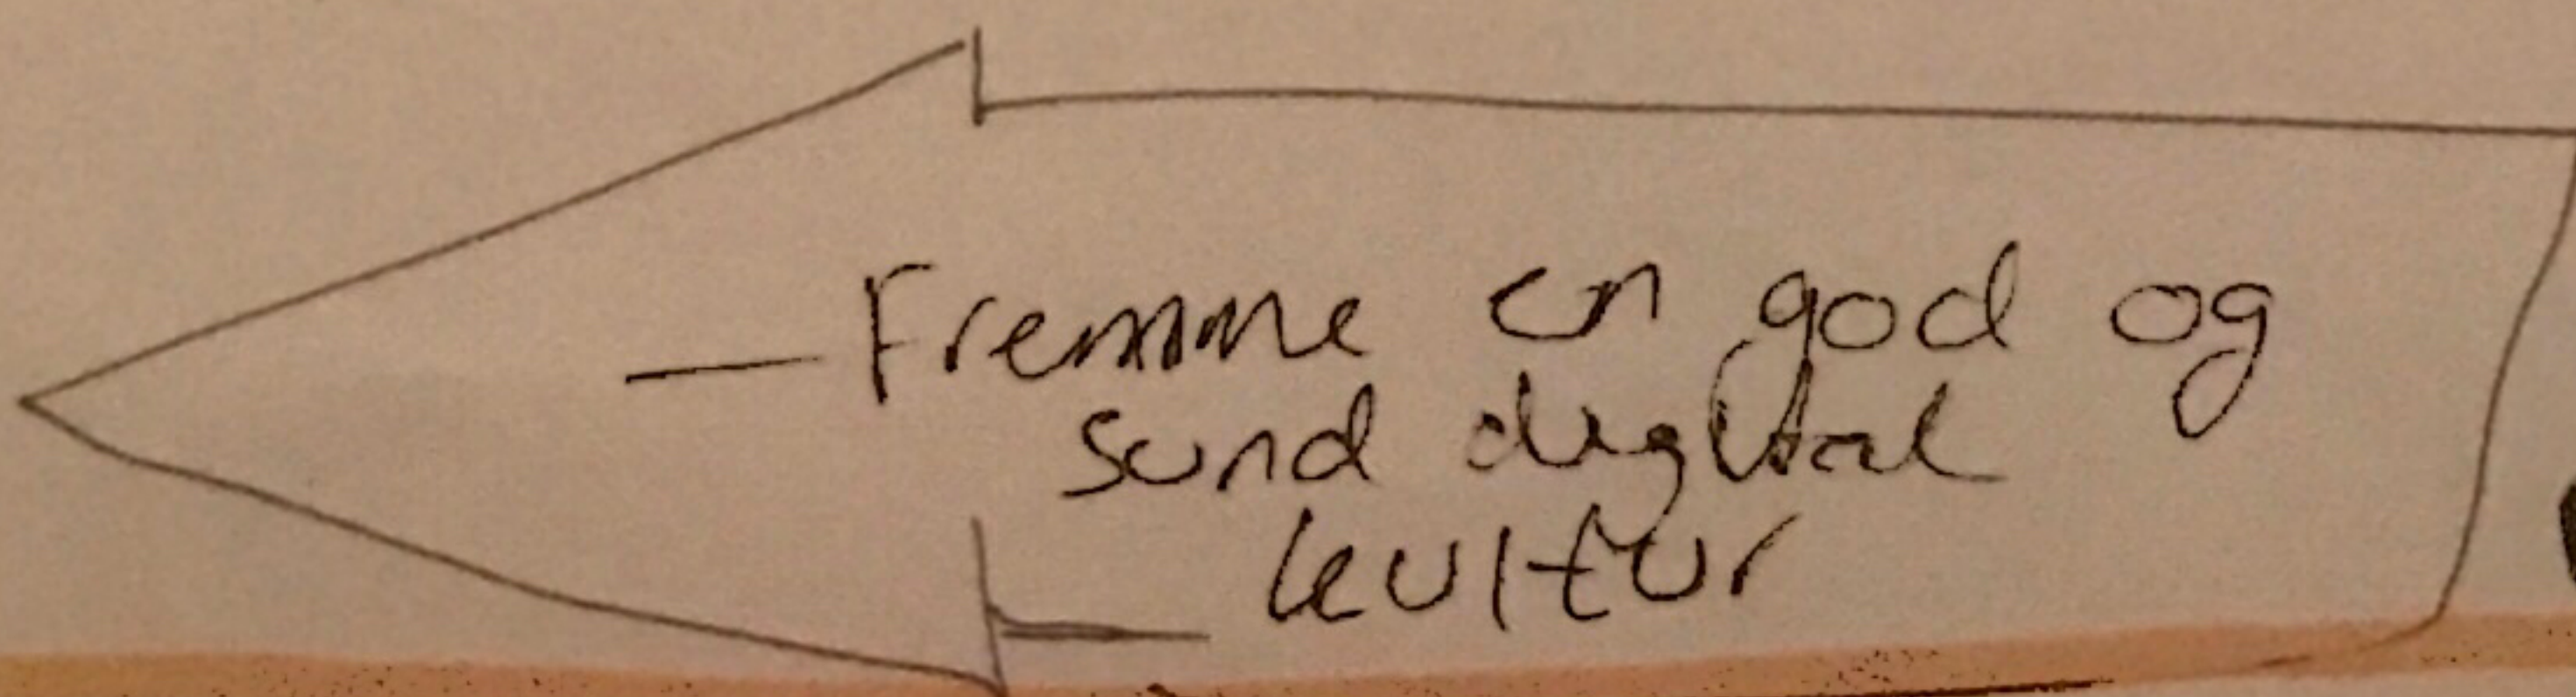 — Fremme en god og
sund digital
kultur